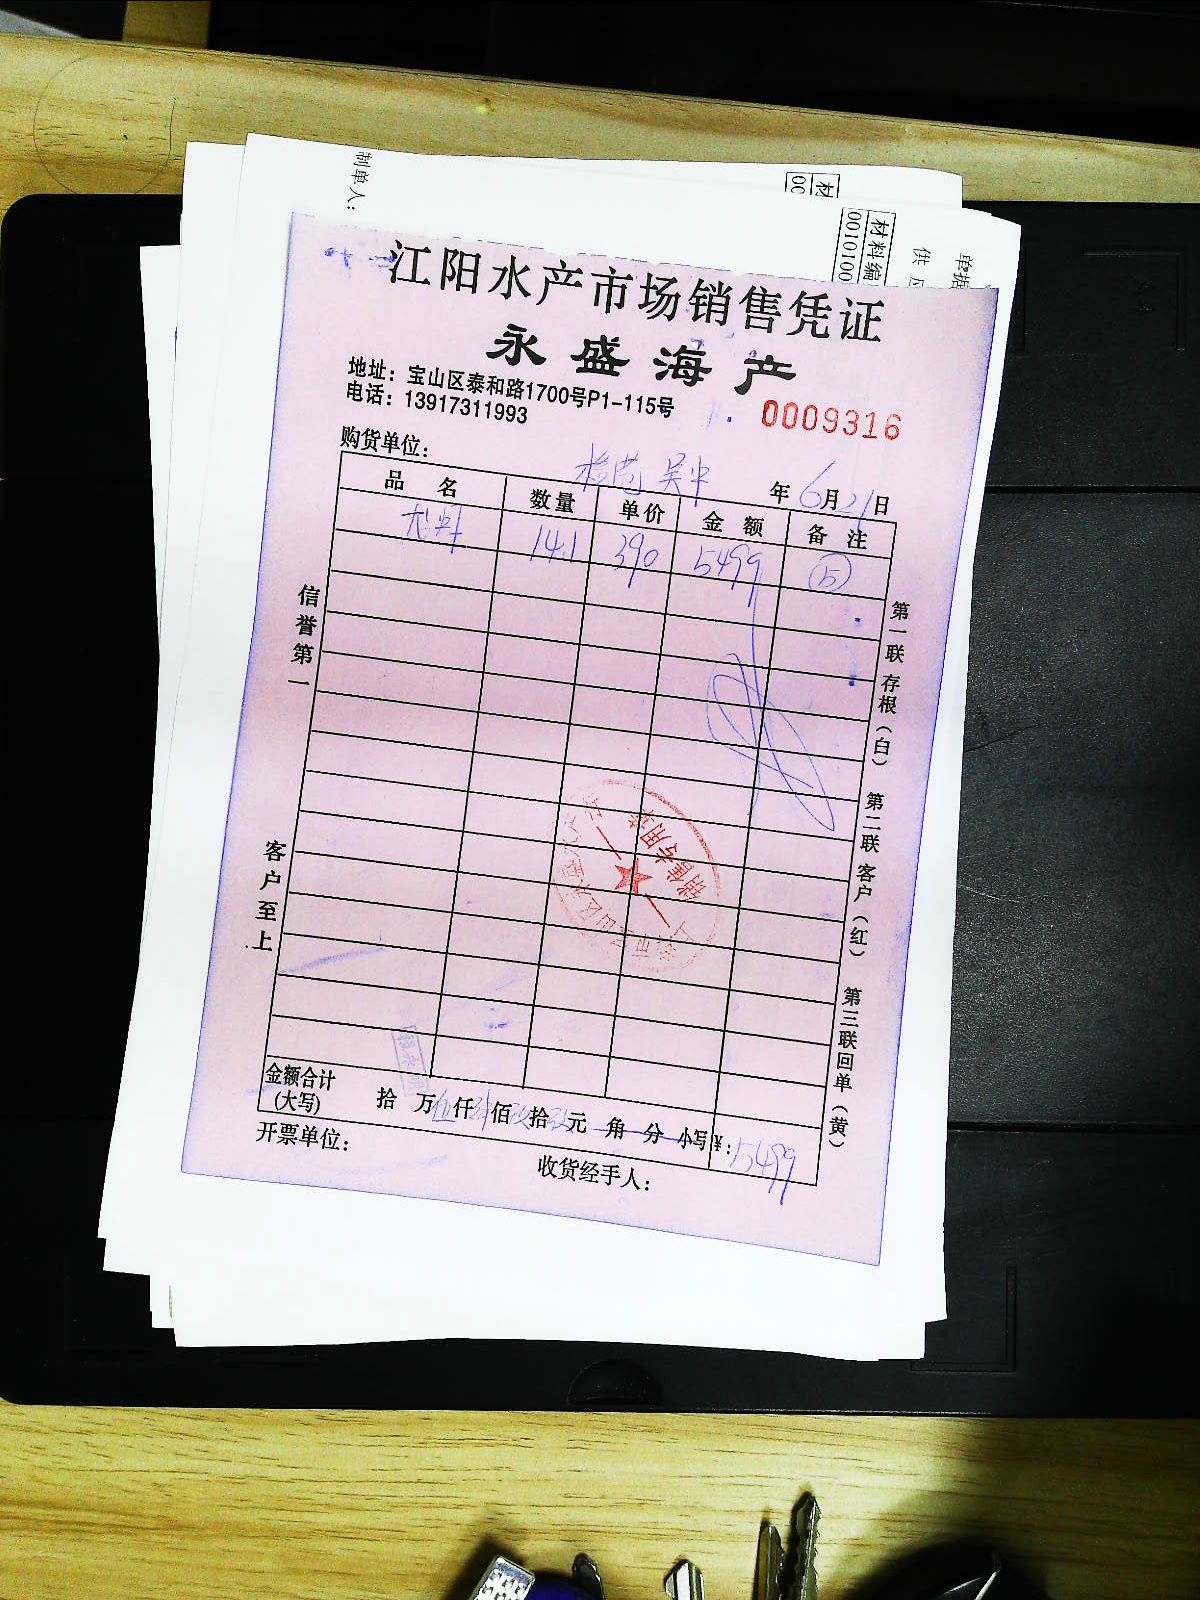 制单人：
材
00
材料编
0010100
供应
单据
江阳水产市场销售凭证
永盛海产
地址：宝山区泰和路1700号P1-115号
电话：13917311993
0009316
购货单位：
年6月21日
品名 数量 单价 金额 备注
14.1 390 5499 15
信誉第一
客户至上
第一联存根（白） 第二联客户（红） 第三联回单（黄）
销售专用章
金额合计（大写） 拾 万伍仟肆佰玖拾玖元 角 分 小写¥：5499
开票单位：
收货经手人：